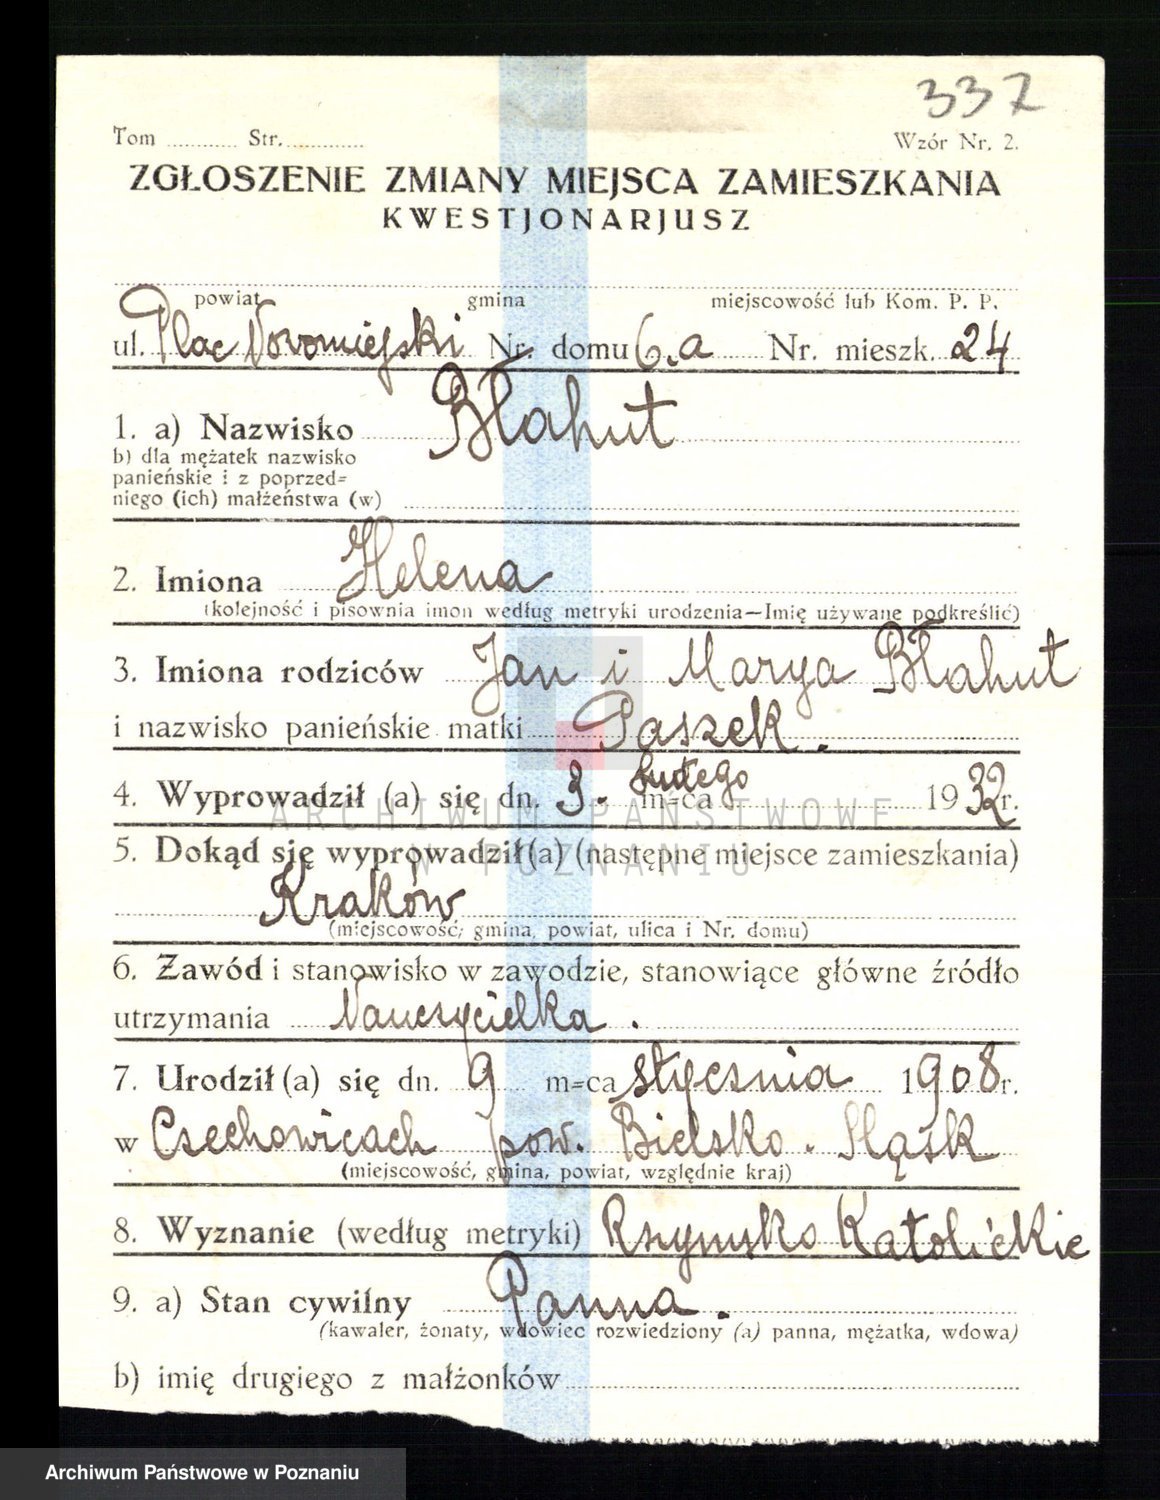 337
Tom ............ Str. ............
Wzór Nr. 2.
ZGŁOSZENIE ZMIANY MIEJSCA ZAMIESZKANIA
KWESTJONARJUSZ
powiat gmina miejscowość lub Kom. P. P.
ul. Plac Novomiejski Nr. domu 6.a Nr. mieszk. 24
1. a) Nazwisko Błahut
b) dla mężatek nazwisko
panieńskie i z poprzed=
niego (ich) małżeństwa (w)
2. Imiona Helena
(kolejność i pisownia imon według metryki urodzenia—Imię używane podkreślić)
3. Imiona rodziców Jan i Marya Błahut
i nazwisko panieńskie matki Paszek.
4. Wyprowadził (a) się dn. 3. m=ca lutego 1932 r.
ARCHIWUM PAŃSTWOWE
W POZNANIU
5. Dokąd się wyprowadził(a) (następne miejsce zamieszkania)
Kraków
(miejscowość, gmina, powiat, ulica i Nr. domu)
6. Zawód i stanowisko w zawodzie, stanowiące główne źródło
utrzymania Nauczycielka.
7. Urodził (a) się dn. 9 m=ca stycznia 1908 r.
w Czechowicach pow. Bielsko. Śląsk
(miejscowość, gmina, powiat, względnie kraj)
8. Wyznanie (według metryki) Rzymsko Katolickie
9. a) Stan cywilny Panna.
(kawaler, żonaty, wdowiec rozwiedziony (a) panna, mężatka, wdowa)
b) imię drugiego z małżonków
Archiwum Państwowe w Poznaniu